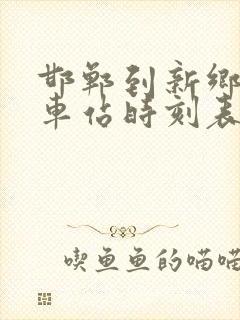 邯鄲到新鄉
車佔時刻表
喫魚魚的喵喵